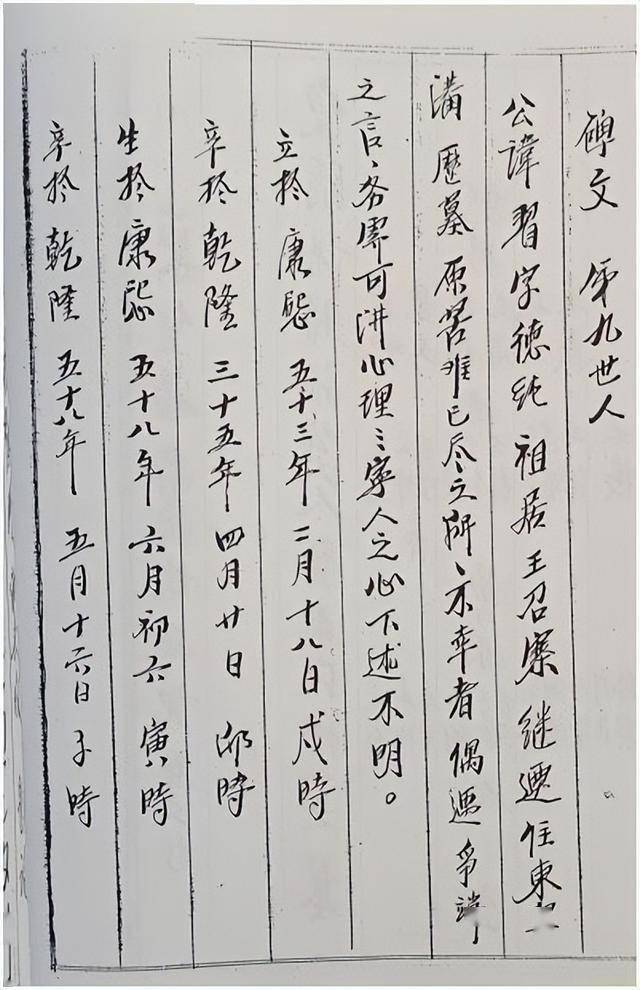 碑文 第九世人
公諱習字德純祖居王召寨继迁住東
溝 歷墓原筶难已尽之所、不幸者偶遇争端
之言、务需可讲心理〻寧人之心下述不明。
立於康熙 五十三年 二月十八日 戍時
卒於乾隆 三十五年 四月廿日 卯時
生於康熙 五十八年 六月初六 寅時
卒於乾隆 五十八年 五月十六日 子時